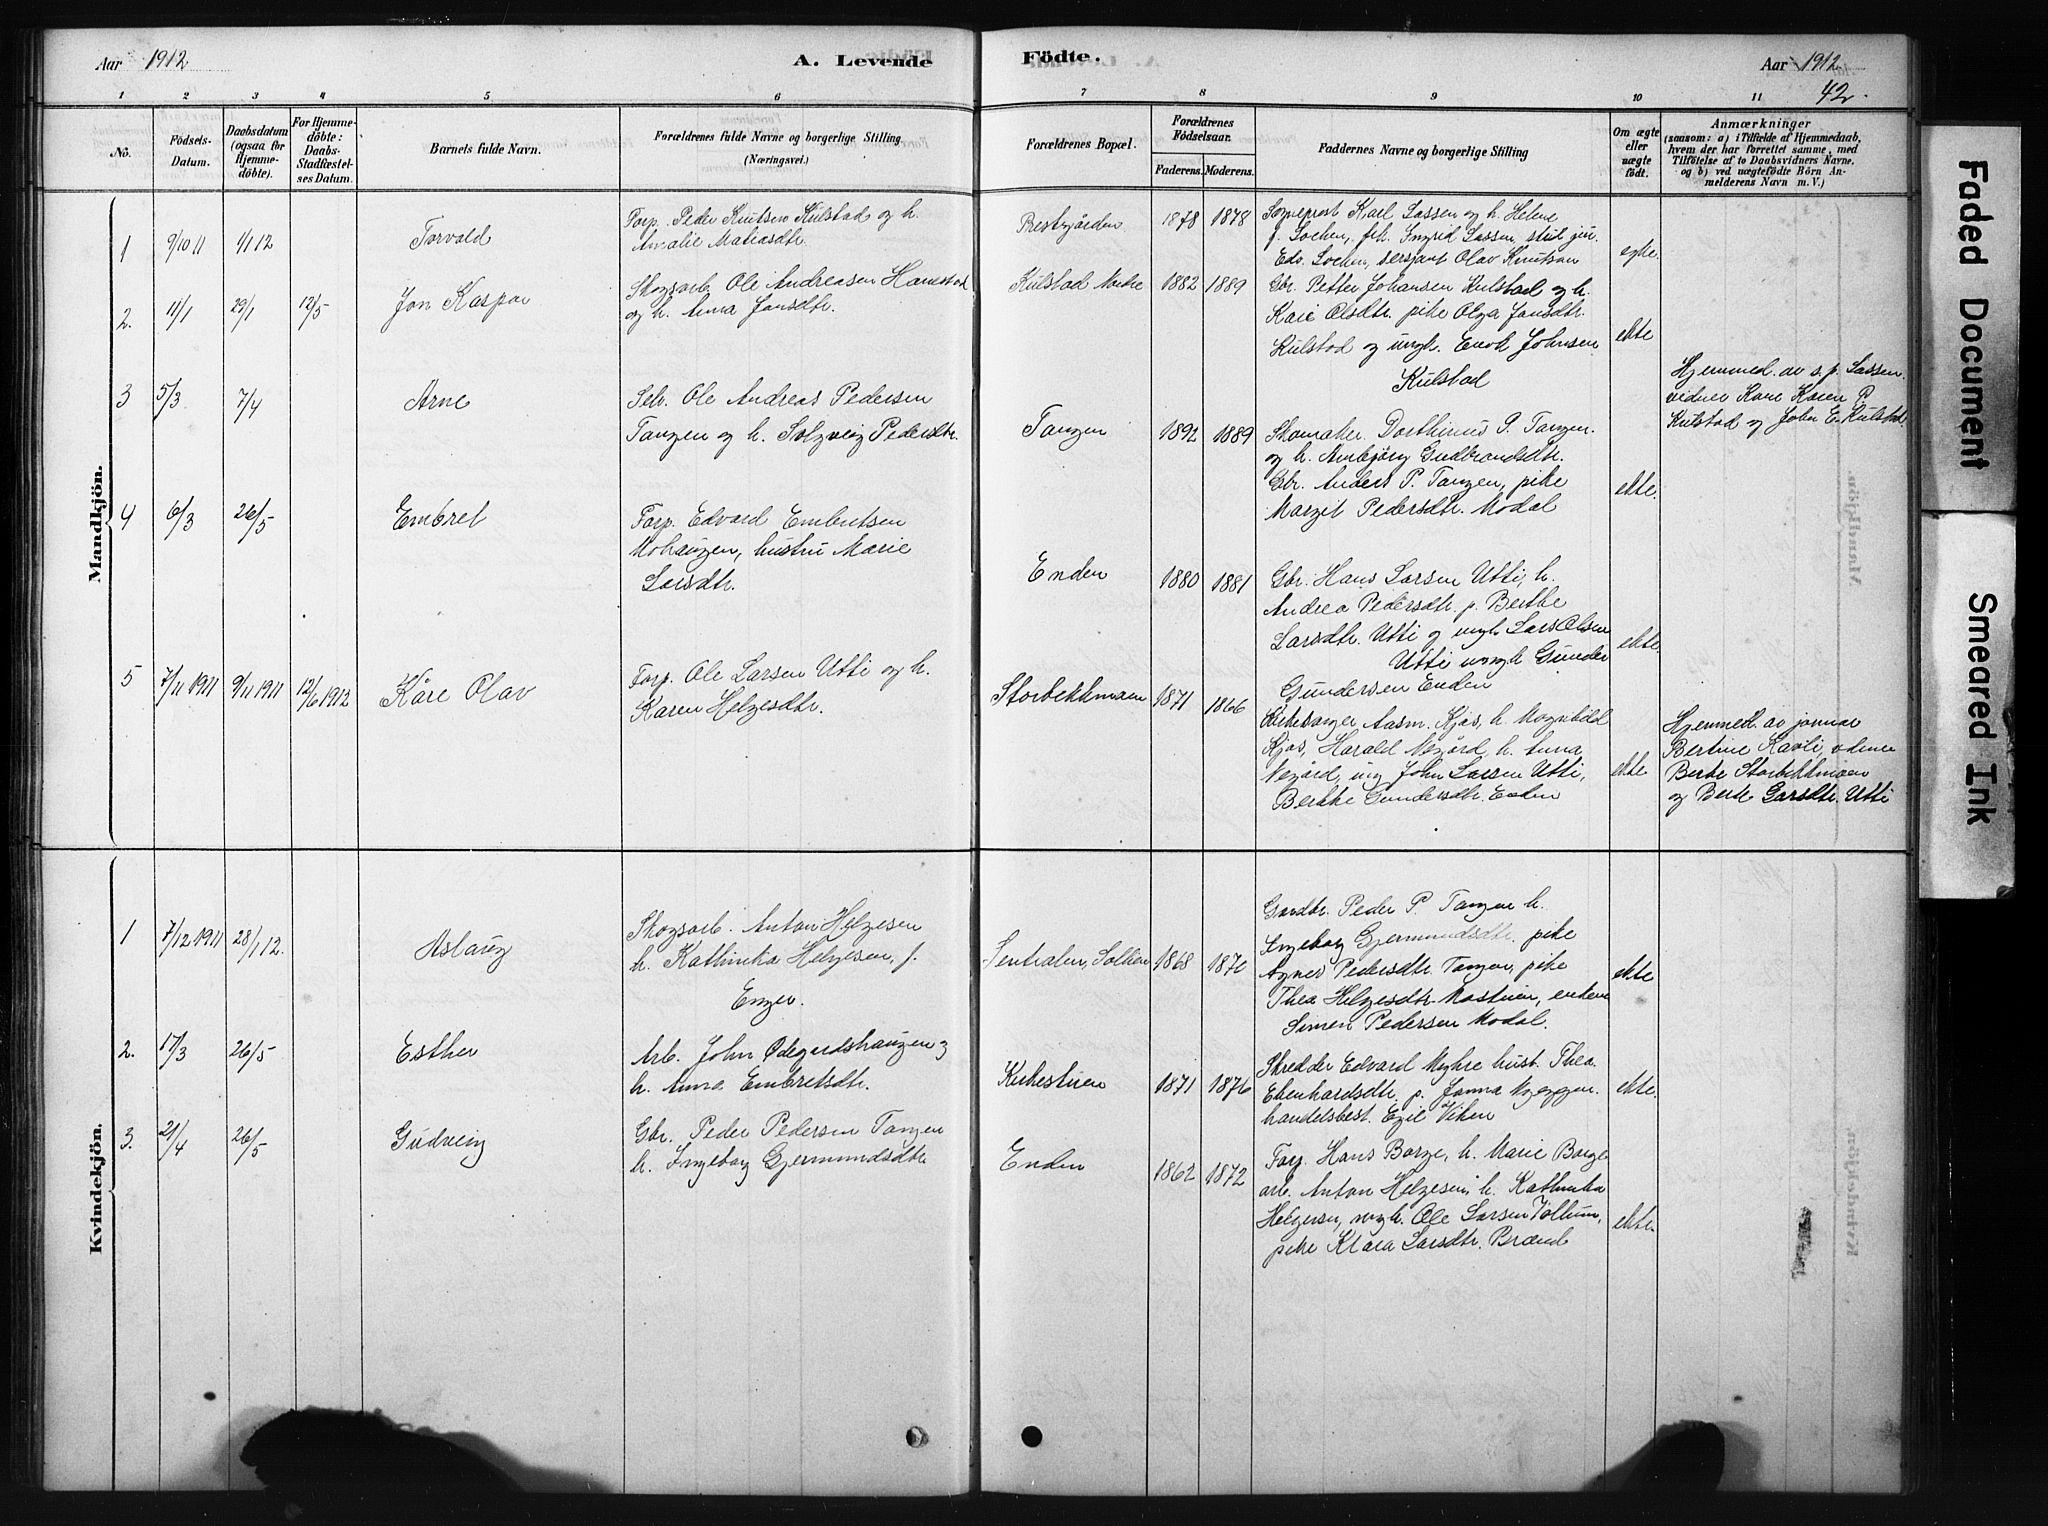 Aar 1912
A. Levende
Födte.
Aar 1912
42.
1 2 3 4 5 6 7 8 9 10 11
No.
Födsels-
Datum.
Daabsdatum
(ogsaa for
Hjemme-
döbte).
For Hjemme-
döbte:
Daabs-
Stadfæstel-
ses Datum.
Barnets fulde Navn.
Forældrenes fulde Navne og borgerlige Stilling
(Næringsvei.)
Forældrenes Bopæl.
Forældrenes
Födselsaar.
Faderens. Moderens.
Faddernes Navne og borgerlige Stilling
Om ægte
eller
uægte
födt.
Anmærkninger
(saasom: a) i Tilfælde af Hjemmedaab,
hvem der har forrettet samme, med
Tilföielse af to Daabsvidners Navne.
og b) ved uægtefödte Börn An-
melderens Navn m. V.)
Mandkjön.
1 9/10 11 1/1 12 Torvald
Forp. Peder Knutsen Kulstad og h.
Amalie Matiasdtr.
Prestgården 1878 1878
Sogneprest Karl Sassen og h. Helene
f. Lochen, frk. Ingrid Sassen, stud. jur.
Edv. Lochen, sersjant Olav Knutsen
egte.
2. 11/1 29/1 12/5 Jon Kaspar
Skogsarb. Ole Andreasen Hanestad
og h. Anna Jonsdtr.
Kulstad 1882 1889
Gbr. Petter Johansen Kulstad og h.
Kari Olsdtr. pike Olga Jonsdtr.
Kulstad og ungk. Enok Johnsen
Kulstad
ekte
Hjemmed. av s.p. Sassen.
vidner Kari Karen P.
Kulstad og John E. Kulstad
3 5/3 7/4 Arne
Selv. Ole Andreas Pedersen
Tangen og h. Solgveig Pedersdtr.
Tangen 1892 1889
Skomaker Dorthinus P. Tangen.
og h. Anbjørg Gudbrandsdtr.
Gbr. Anders P. Tangen, pike
Margit Pedersdtr. Modal
ekte.
4 6/3 26/5 Embret
Forp. Edvard Embretsen
Mohaugen, hustru Marie
Larsdtr.
Enden 1880 1881
Gbr. Hans Larsen Utti, h.
Andrea Pedersdtr. p. Berthe
Larsdtr. Utti og ungk. Lars Olsen
Utti ungk Gunder
Gundersen Enden
ekte.
5 7/11 1911 9/11 1911 12/6 1912 Kåre Olav
Forp. Ole Larsen Utti og h.
Karen Helgesdtr.
Storbekkmoen 1871 1866
Kirkesanger Aasm. Kjos, h. Magnhild
Kjos, Harald Negård, h. Anna
Negård, ung John Larsen Utti,
Berthe Gundersdtr. Enden
ekte
Hjemmed. av jormor
Bertine Kavli, vidner
Berte Storbekkmoen
og Berte Larsdtr. Utti
Kvindekjön.
1 7/12 1911 28/1 12. Aslaug
Skogsarb. Anton Helgesen
h. Kathinka Helgesen, f.
Enger.
Sentralen, Sollien 1868 1870
Gardbr. Peder P. Tangen h.
Ingeborg Gjermundsdtr. pike
Agnes Pedersdtr. Tangen, pike
Thea Helgesdtr. Mostuen, enkem
Simen Pedersen Modal.
ekte
2. 17/3 26/5 Esther
Arb. John Ødegardshaugen og
h. Anna Embretsdtr.
Kirkestuen 1871 1876
Skredder Edvard Myhre hust. Thea
Ebenhardsdtr. p. Janna
handelsbest. Egil Viken
ekte.
3. 21/4 26/5 Gudveig
Gbr. Peder Pedersen Tangen
h. Ingeborg Gjermundsdtr
Enden 1862 1872
Forp. Hans Borge, h. Marie Borge
arb. Anton Helgesen, h. Kathinka
Helgesen, ungk. Ole Larsen Vollum,
pike Klara Larsdtr. Brænd
ekte.
Faded Document
Smeared Ink